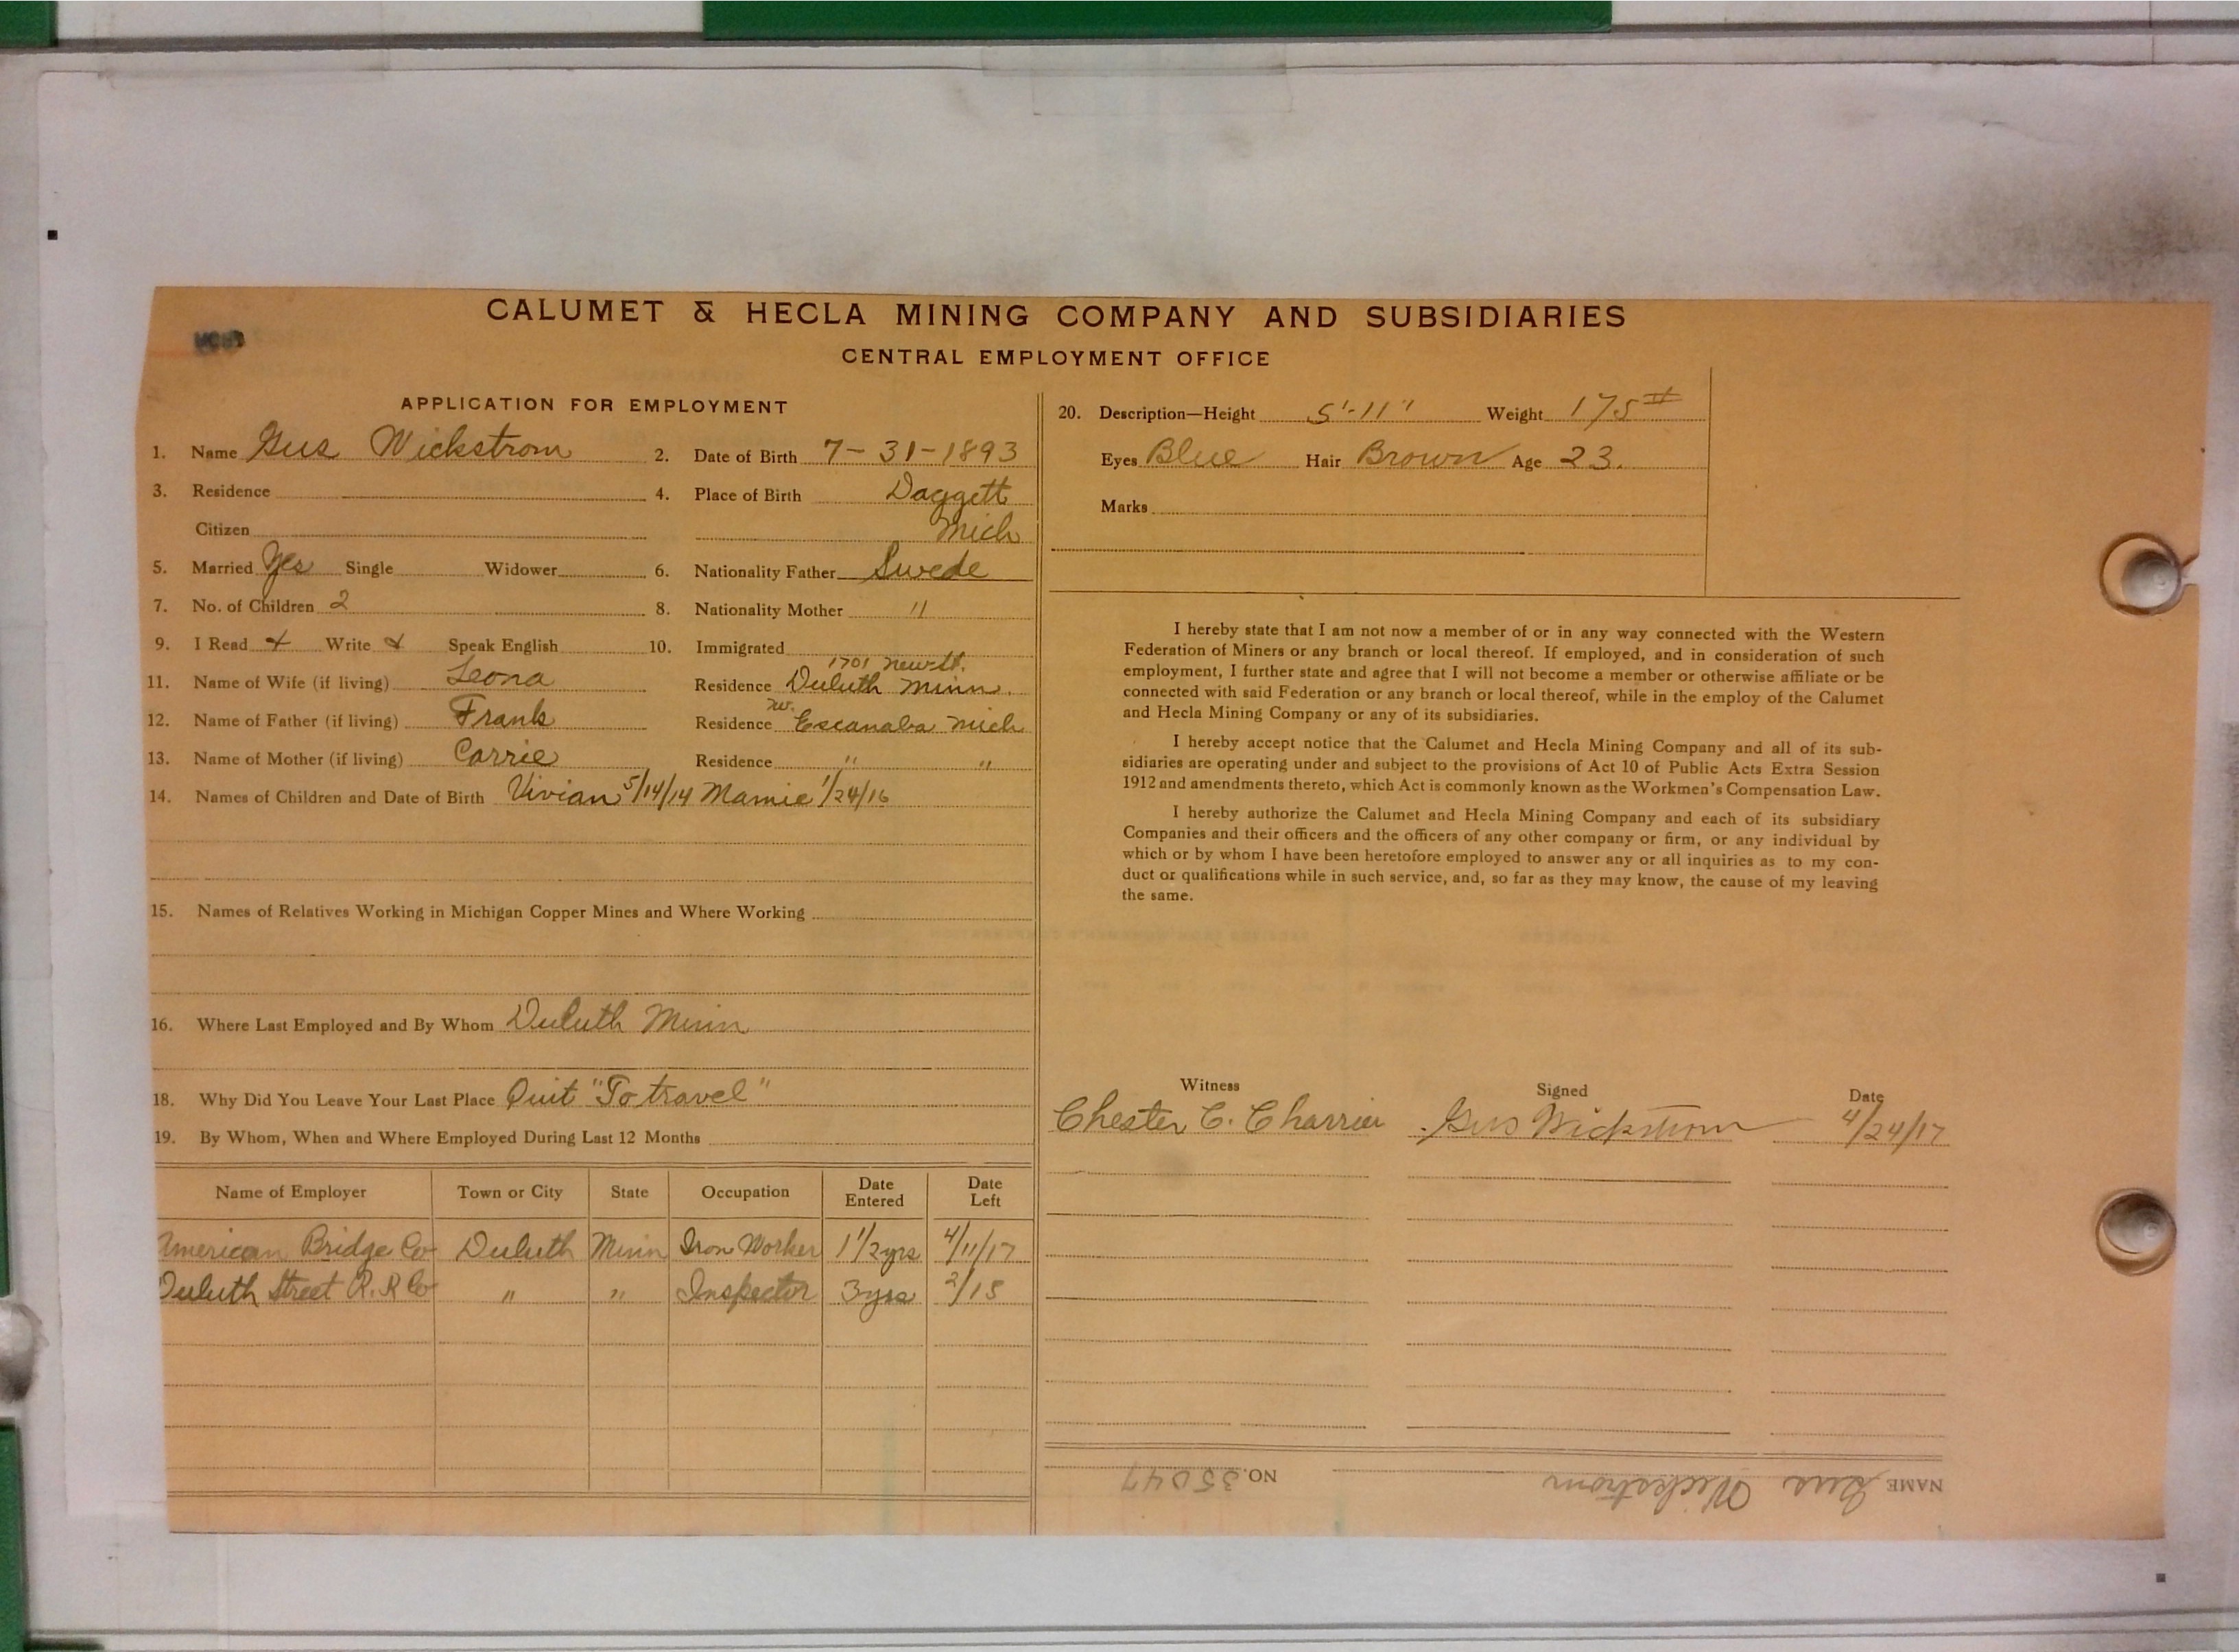 CALUMET & HECLA MINING COMPANY AND SUBSIDIARIES
CENTRAL EMPLOYMENT OFFICE
APPLICATION FOR EMPLOYMENT
1. Name Gus Wickstrom 2. Date of Birth 7-31-1893
3. Residence 4. Place of Birth Daggett
Citizen Mich
5. Married Yes Single Widower 6. Nationality Father Swede
7. No. of Children 2 8. Nationality Mother "
9. I Read Write Speak English 10. Immigrated
1701 New St.
11. Name of Wife (if living) Leona Residence Duluth Minn.
W.
12. Name of Father (if living) Frank Residence Escanaba Mich
13. Name of Mother (if living) Carrie Residence " "
14. Names of Children and Date of Birth Vivian 5/14/14 Mamie 1/24/16
15. Names of Relatives Working in Michigan Copper Mines and Where Working
16. Where Last Employed and By Whom Duluth Minn
18. Why Did You Leave Your Last Place Quit "To travel"
19. By Whom, When and Where Employed During Last 12 Months
Name of Employer Town or City State Occupation Date Entered Date Left
American Bridge Co Duluth Minn Iron Worker 1 1/2 yrs 4/11/17
Duluth Street R.R Co " " Inspector 3 yrs 2/15
20. Description—Height 5'-11" Weight 175#
Eyes Blue Hair Brown Age 23.
Marks
I hereby state that I am not now a member of or in any way connected with the Western
Federation of Miners or any branch or local thereof. If employed, and in consideration of such
employment, I further state and agree that I will not become a member or otherwise affiliate or be
connected with said Federation or any branch or local thereof, while in the employ of the Calumet
and Hecla Mining Company or any of its subsidiaries.
I hereby accept notice that the Calumet and Hecla Mining Company and all of its sub-
sidiaries are operating under and subject to the provisions of Act 10 of Public Acts Extra Session
1912 and amendments thereto, which Act is commonly known as the Workmen's Compensation Law.
I hereby authorize the Calumet and Hecla Mining Company and each of its subsidiary
Companies and their officers and the officers of any other company or firm, or any individual by
which or by whom I have been heretofore employed to answer any or all inquiries as to my con-
duct or qualifications while in such service, and, so far as they may know, the cause of my leaving
the same.
Witness Signed Date
Chester C. Charrier Gus Wickstrom 4/24/17
NAME Gus Wickstrom NO. 35047